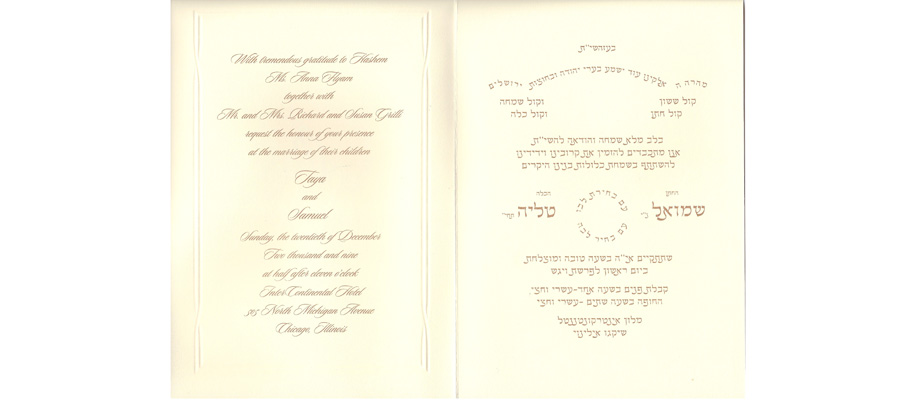 With tremendous gratitude to Hashem
Ms. Anna Agam
together with
Mr. and Mrs. Richard and Susan Grilli
request the honour of your presence
at the marriage of their children
Taya
and
Samuel
Sunday, the twentieth of December
Two thousand and nine
at half after eleven o'clock
Inter-Continental Hotel
505 North Michigan Avenue
Chicago, Illinois
בעזהשי"ת
מהרה ה' אלקינו עוד ישמע בערי יהודה ובחוצות ירושלים
קול ששון וקול שמחה
קול חתן וקול כלה
בלב מלא שמחה והודאה להשי"ת
אנו מתכבדים להזמין את קרובינו וידידינו
להשתתף בשמחת כלולות בנינו היקרים
החתן
הכלה
שמואל
טליה
עם בחירת לבו
עם בחיר לבה
שתתקיים אי"ה בשעה טובה ומוצלחת
ביום ראשון לפרשת ויגש
קבלת פנים בשעה אחד-עשרי וחצי
החופה בשעה שתים-עשרי וחצי
מלון אינטרקונטיננטל
שיקגו אילינוי